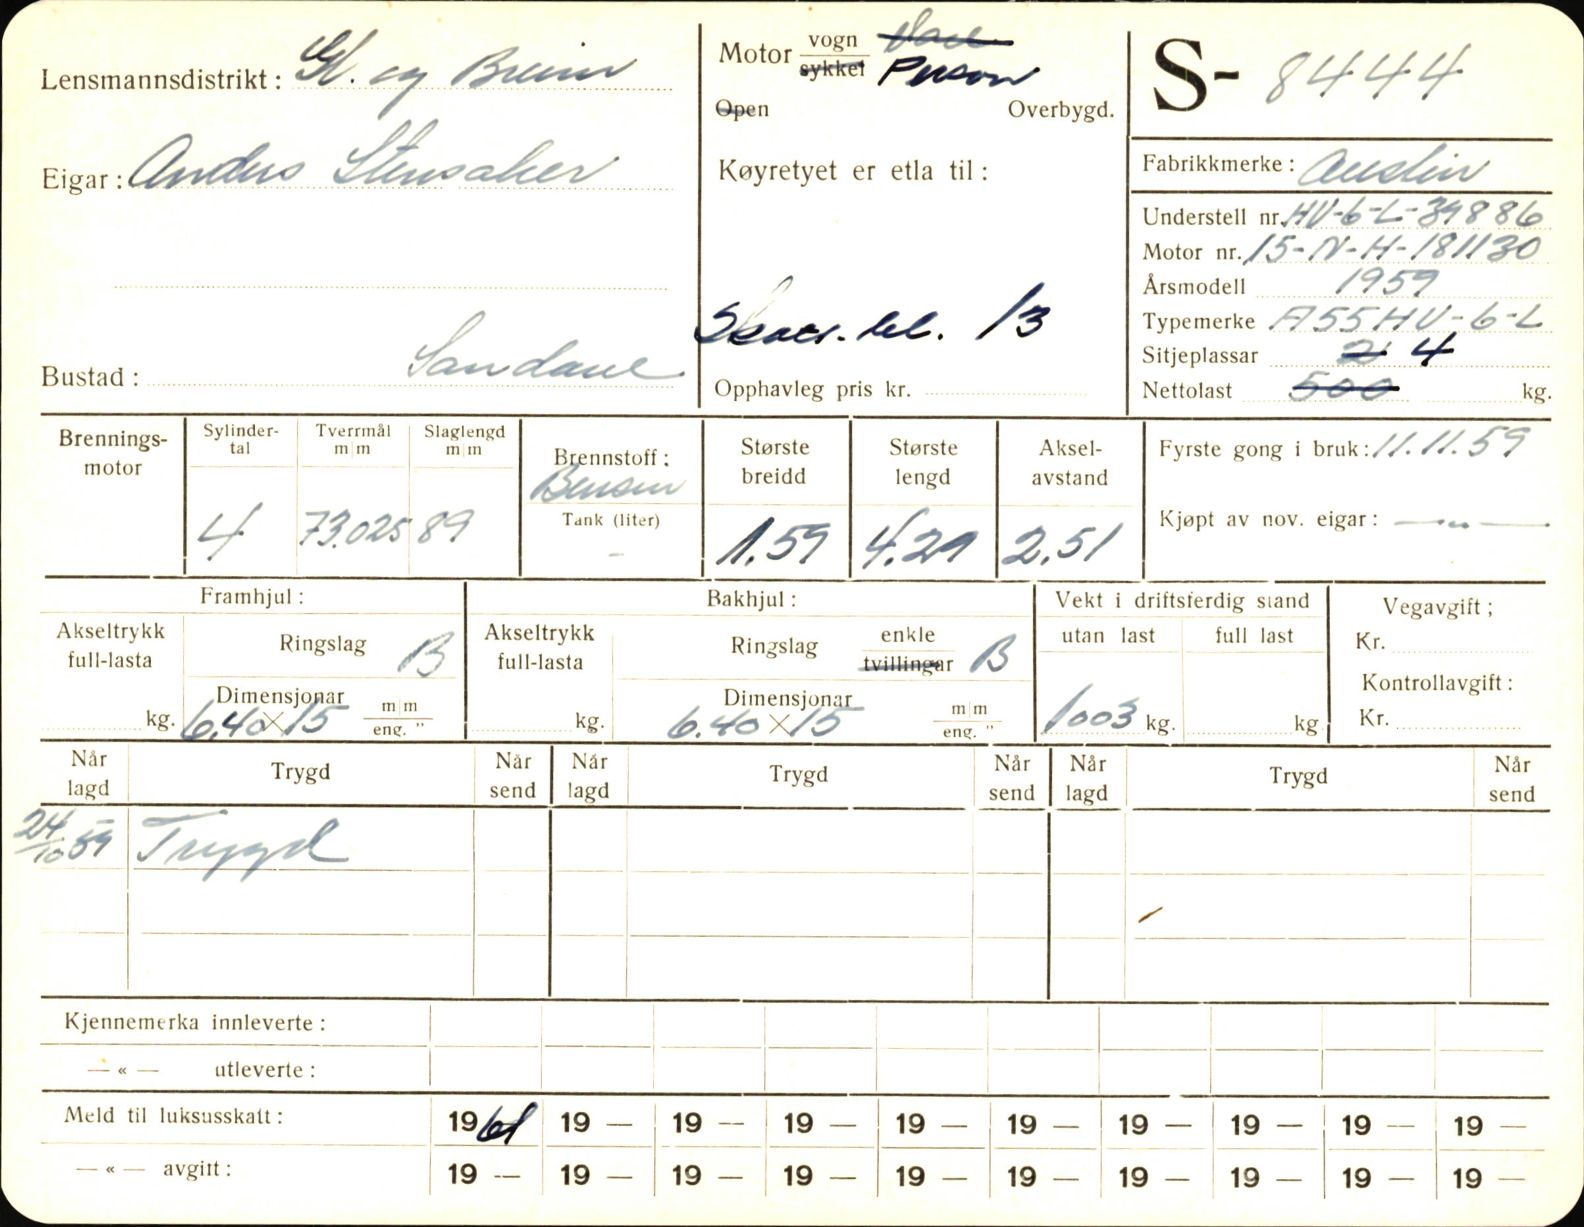 Lensmannsdistrikt: Gl. og Breim
Eigar: Anders Stensaker
Bustad: Sandane
Motor vogn sykkel Vare Person
Open Overbygd.
Køyretyet er etla til:
13
Opphavleg pris kr.
S- 8444
Fabrikkmerke: Austin
Understell nr. HV-6-L-39886
Motor nr. 15-N-H-181130
Årsmodell 1959
Typemerke A55HV-6-L
Sitjeplassar 2 4
Nettolast 500 kg.
Brennings-motor
Sylinder-tal 4
Tverrmål m|m 73.025
Slaglengd m|m 89
Brennstoff: Bensin
Tank (liter) -
Største breidd 1.59
Største lengd 4.29
Aksel-avstand 2.51
Fyrste gong i bruk: 11.11.59
Kjøpt av nov. eigar: — „ —
Framhjul:
Akseltrykk full-lasta kg.
Ringslag B
Dimensjonar 6.40 x 15 m|m eng. "
Bakhjul:
Akseltrykk full-lasta kg.
Ringslag enkle tvillingar B
Dimensjonar 6.40 x 15 m|m eng. "
Vekt i driftsferdig stand
utan last 1003 kg.
full last kg
Vegavgift;
Kr.
Kontrollavgift:
Kr.
Når lagd Trygd Når send Når lagd Trygd Når send Når lagd Trygd Når send
24/10 59 Trygd
Kjennemerka innleverte:
— « — utleverte:
Meld til luksusskatt: 1961 19 — 19 — 19 — 19 — 19 — 19 — 19 — 19 — 19 —
— « — avgift: 19 — 19 — 19 — 19 — 19 — 19 — 19 — 19 — 19 — 19 —